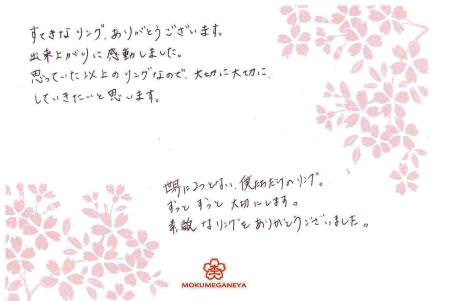 すてきなリング、ありがとうございます。
出来上がりに感動しました。
思っていた以上のリングなので、大切に大切に
していきたいと思います。
世界に2つとない、僕たちだけのリング。
ずっとずっと大切にします。
素敵なリングをありがとうございました。
MOKUMEGANEYA